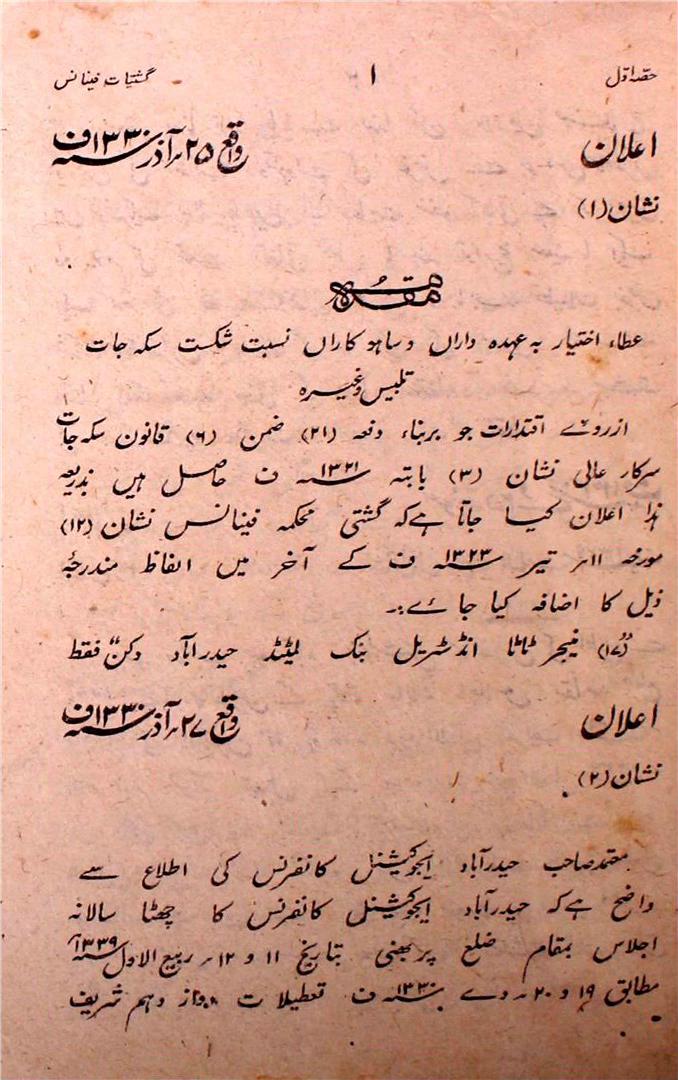 حصّہ اول ۱ گشتیات فینانس
اعلان واقع ۲۵؍ آذر ۱۳۳۰؁ف
نشان (۱)
مقدمہ
عطاء اختیار بہ عہدہ داراں و ساہوکاراں نسبت شکست سکہ جات
تلبیس وغیرہ
ازروے اقتدارات جو بربناء دفعہ (۲۱) ضمن (۶) قانون سکہ جات
سرکار عالی نشان (۳) بابتہ ۱۳۲۱؁ ف حاصل ہیں بذریعہ
ہٰذا اعلان کیا جاتا ہے کہ گشتی محکمہ فینانس نشان (۱۲)
مورخہ ۱۱؍ تیر ۱۳۲۳؁ ف کے آخر میں الفاظ مندرجۂ
ذیل کا اضافہ کیا جاۓ:۔
”(۱۷) منیجر ٹاٹا انڈسٹریل بنک لمیٹڈ حیدرآباد دکن“ فقط
اعلان واقع ۲۷؍ آذر ۱۳۳۰؁ف
نشان (۲)
معتمد صاحب حیدرآباد ایجوکیشنل کانفرنس کی اطلاع سے
واضح ہے کہ حیدرآباد ایجوکیشنل کانفرنس کا چھٹا سالانہ
اجلاس بمقام ضلع پربھنی بتاریخ ۱۱ و ۱۲؍ ربیع الاول ۱۳۳۹؁ھ
مطابق ۱۹ و ۲۰؍ دے ۱۳۳۰؁ ف تعطیلات دوازدہم شریف